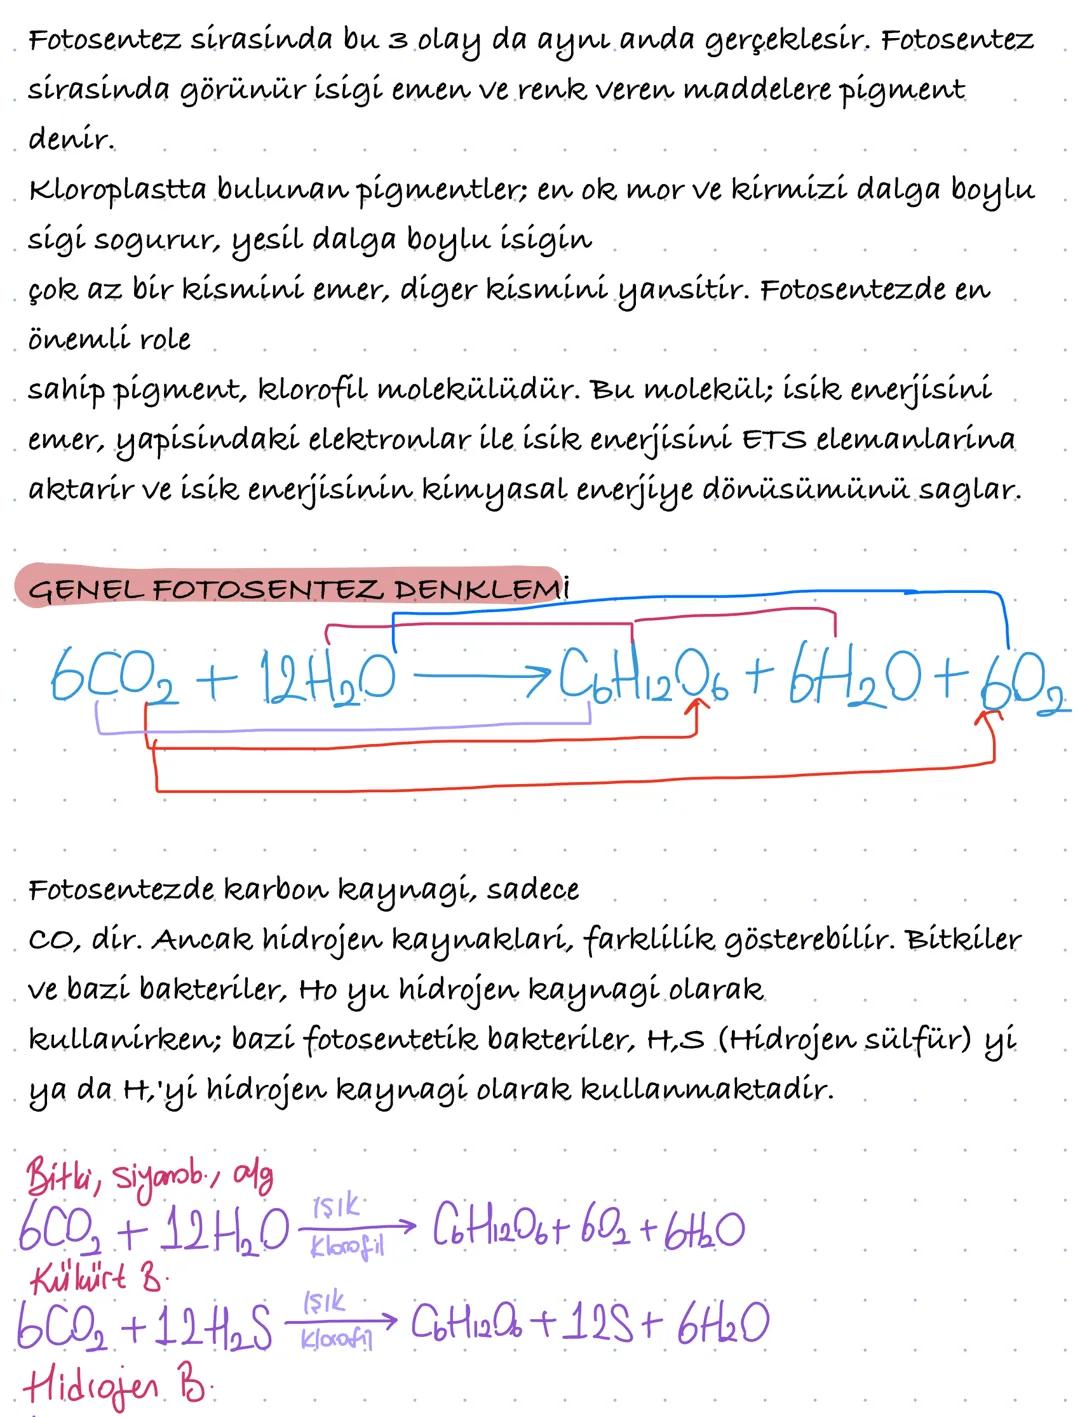 Fotosentez sirasinda bu 3 olay da aynı anda gerçeklesir. Fotosentez
sirasinda görünür isigi emen ve renk veren maddelere pigment
denir.
Kloroplastta bulunan pigmentler; en ok mor ve kirmizi dalga boylu
sigi sogurur, yesil dalga boylu isigin
çok az bir kismini emer, diger kismini yansitir. Fotosentezde en
önemli role
sahip pigment, klorofil molekülüdür. Bu molekül; isik enerjisini
emer, yapisindaki elektronlar ile isik enerjisini ETS elemanlarina
aktarir ve isik enerjisinin kimyasal enerjiye dönüsümünü saglar.
GENEL FOTOSENTEZ DENKLEMİ
6CO₂ + 12H₂O → C₆H₁₂O₆ + 6H₂O + 6O₂
Fotosentezde karbon kaynagi, sadece
CO, dir. Ancak hidrojen kaynaklari, farklilik gösterebilir. Bitkiler
ve bazi bakteriler, Ho yu hidrojen kaynagi olarak
kullanirken; bazi fotosentetik bakteriler, H,S (Hidrojen sülfür) yi
ya da H,'yi hidrojen kaynagi olarak kullanmaktadir.
Bitki, siyanob., alg
6CO₂ + 12H₂O Işık Klorofil → C₆H₁₂O₆ + 6O₂ + 6H₂O
Kükürt B.
6CO₂ + 12H₂S Işık Klorofil → C₆H₁₂O₆ + 12S + 6H₂O
Hidrojen B.